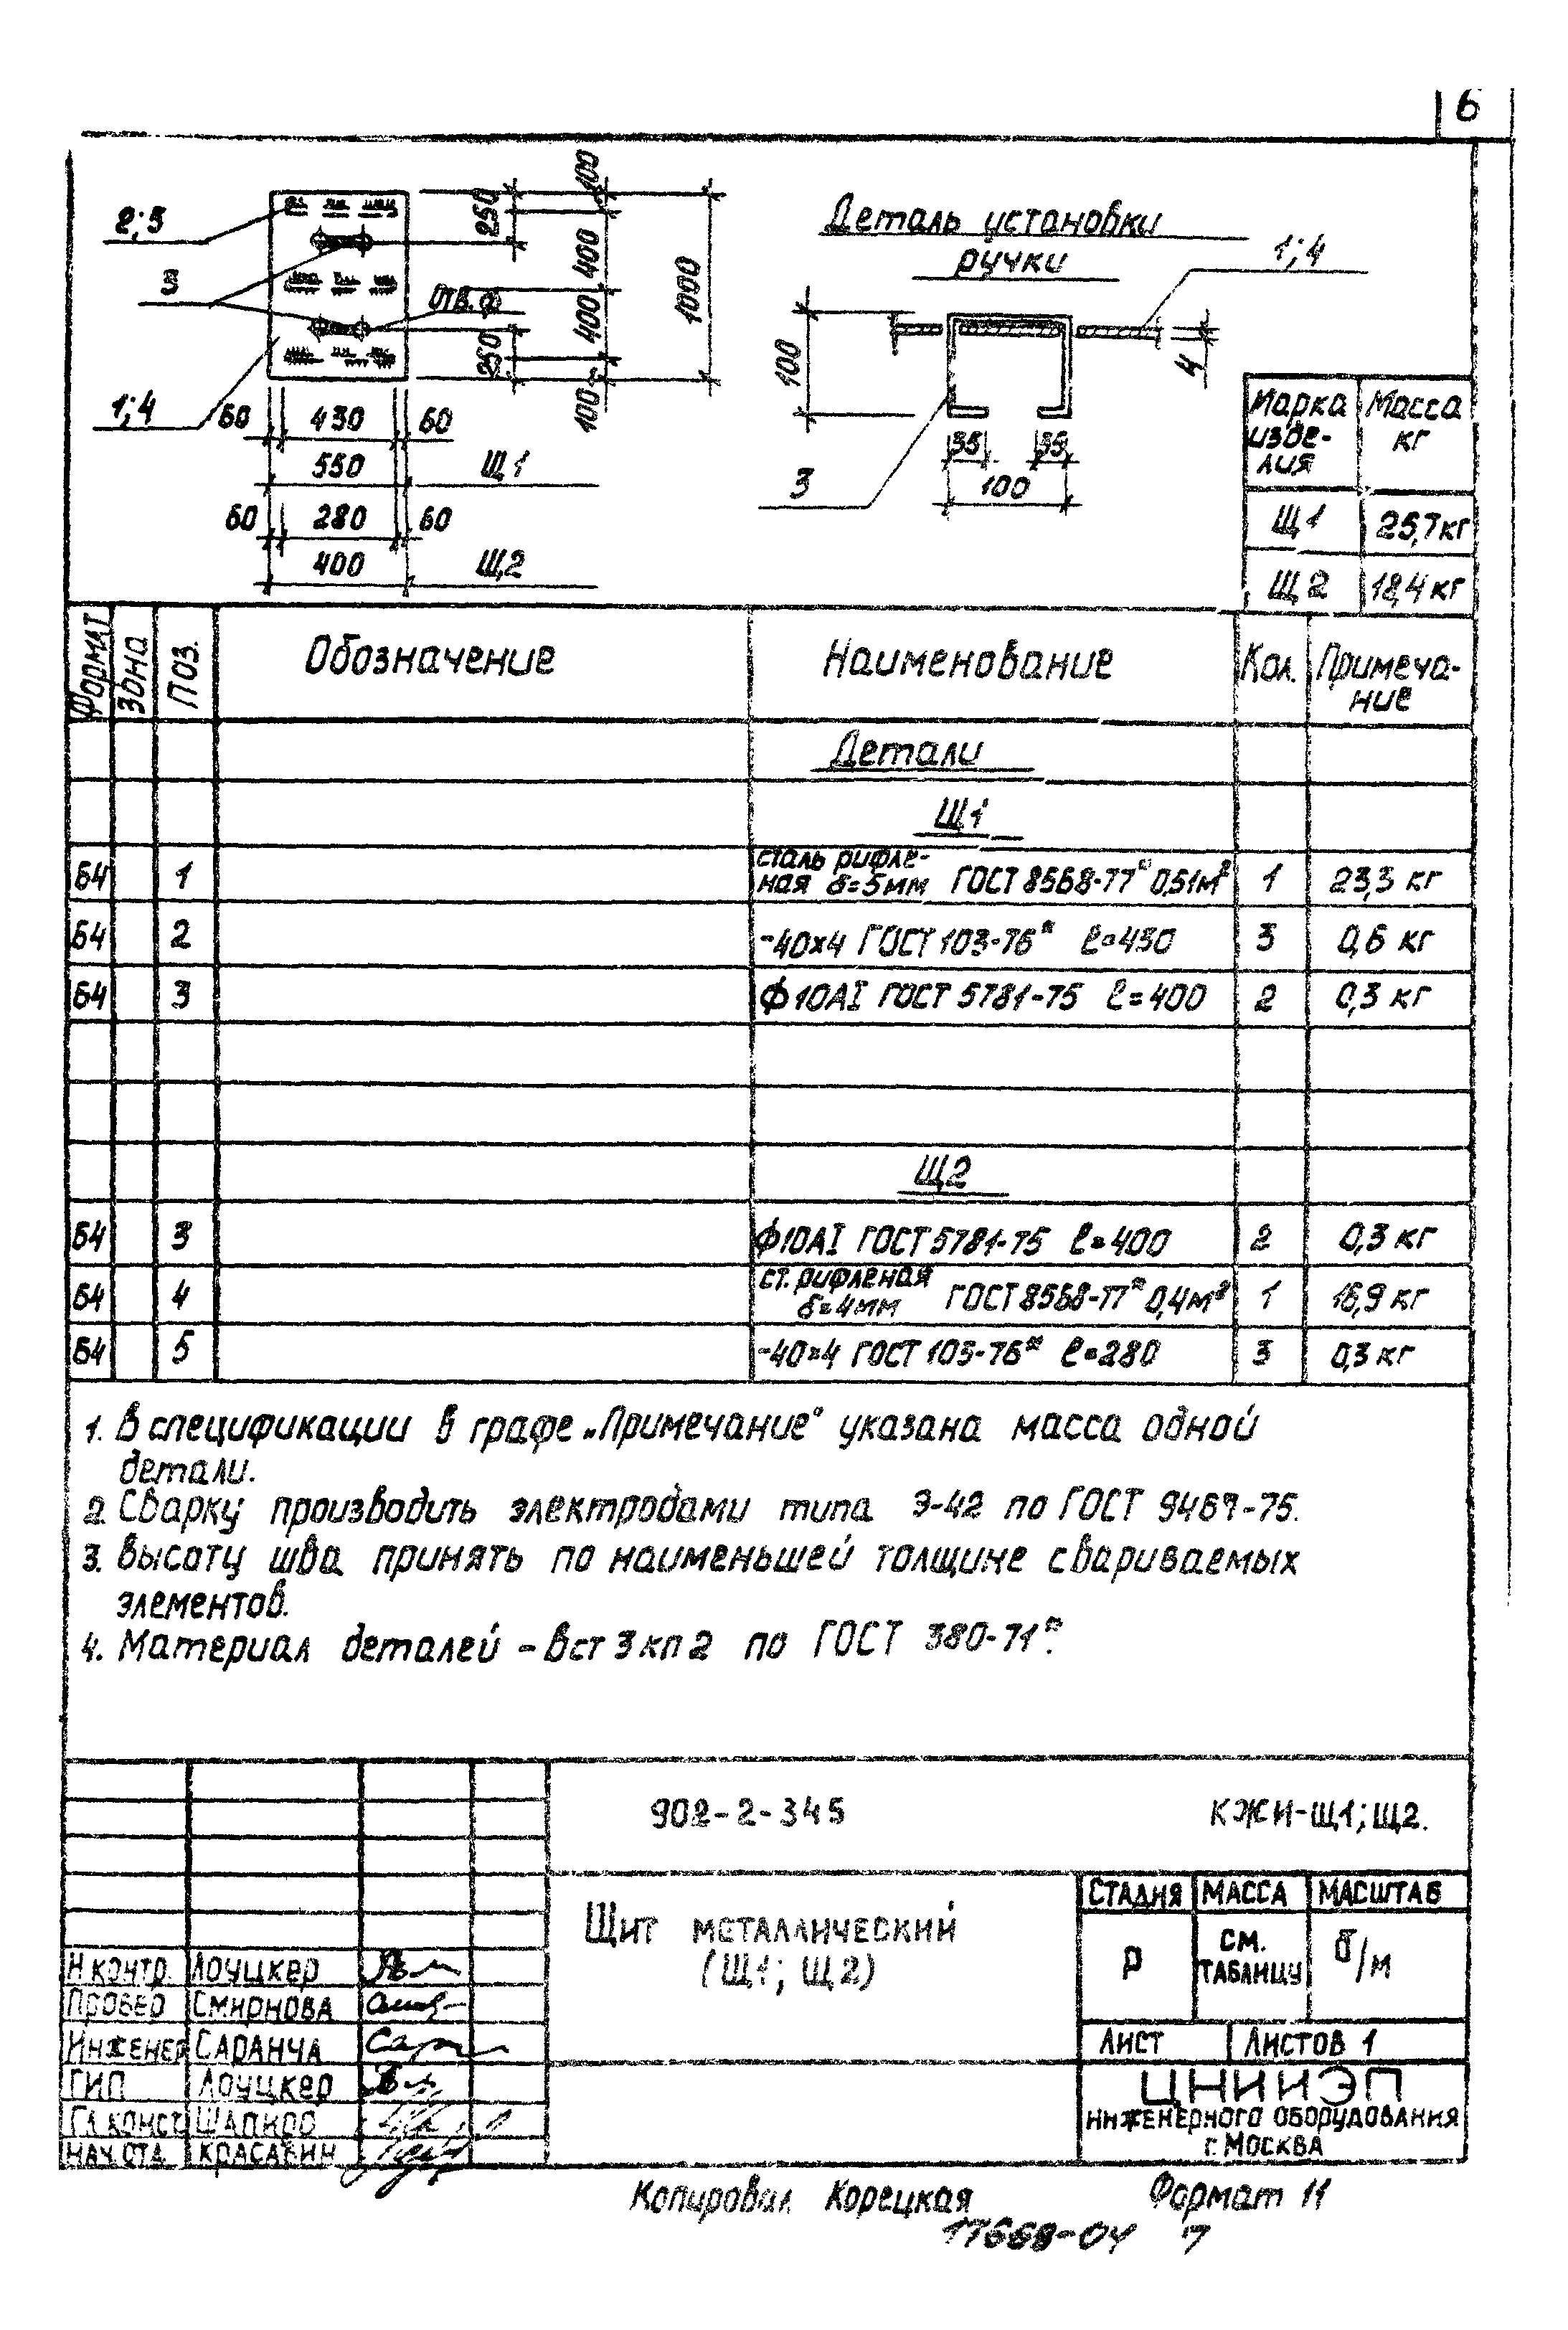 6
2;5
3
1;4
Отв. ф
250
250
100
400
400
100
1000
60 430 60
550 Щ1
60 280 60
400 Щ2
Деталь установки
ручки
1;4
100
4
3
35 35
100
Марка изде-лия Масса кг
Щ1 25,7кг
Щ2 18,4кг
Формат Зона Поз. Обозначение Наименование Кол. Примеча-ние
Детали
Щ1
сталь рифле-
Б4 1 ная δ=5мм ГОСТ 8568-77* 0,51м² 1 23,3 кг
Б4 2 -40х4 ГОСТ 103-76* ℓ=430 3 0,6 кг
Б4 3 ф10АI ГОСТ 5781-75 ℓ=400 2 0,3 кг
Щ2
Б4 3 ф10АI ГОСТ 5781-75 ℓ=400 2 0,3 кг
ст. рифленая
Б4 4 δ=4мм ГОСТ 8568-77* 0,4м² 1 16,9 кг
Б4 5 -40х4 ГОСТ 103-76* ℓ=280 3 0,3 кг
1. В спецификации в графе „Примечание" указана масса одной
детали.
2. Сварку производить электродами типа Э-42 по ГОСТ 9467-75.
3. Высоту шва принять по наименьшей толщине свариваемых
элементов.
4. Материал деталей - Вст 3 кп 2 по ГОСТ 380-71*.
902-2-345 КЖИ-Щ1; Щ2.
Щит металлический
(Щ1; Щ2)
Стадия Масса Масштаб
Р см. таблицу б/м
Лист Листов 1
ЦНИИЭП
инженерного оборудования
г. Москва
Н контр. Лоуцкер
Провер Смирнова
Инженер Саранча
ГИП Лоуцкер
Гл. конст. Шапиро
Нач. отд. Красавин
Копировал Корецкая Формат 11
17668-04 7